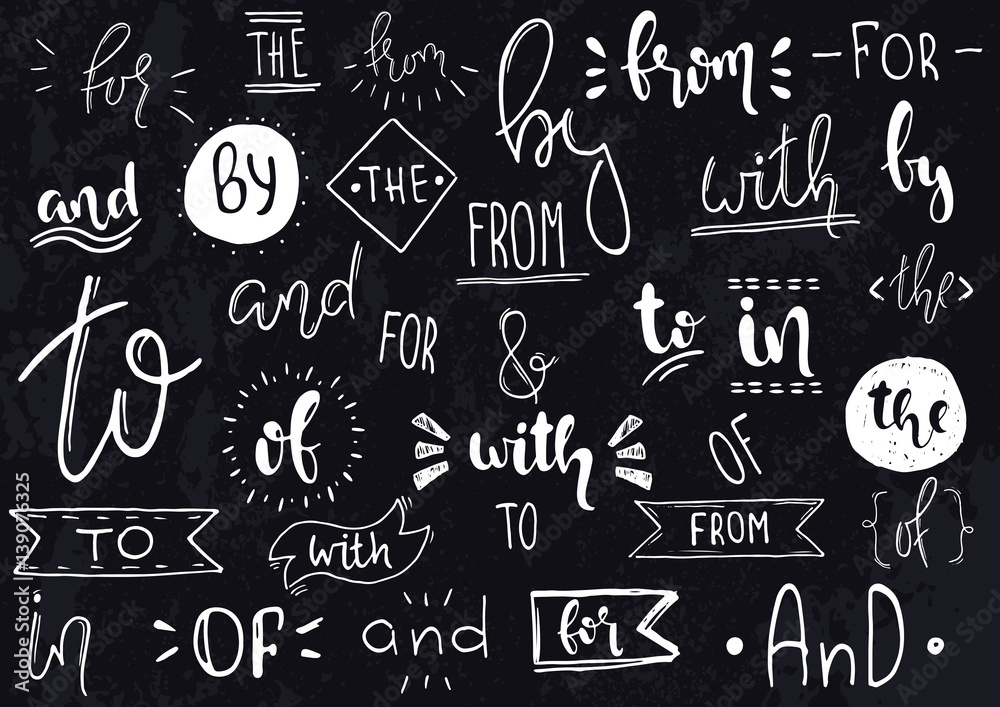 for THE from by from - FOR -
and BY THE FROM with by
to and FOR & to in <the>
of with OF the
TO with TO FROM {of}
in OF and for AnD
Adobe Stock | #139076325